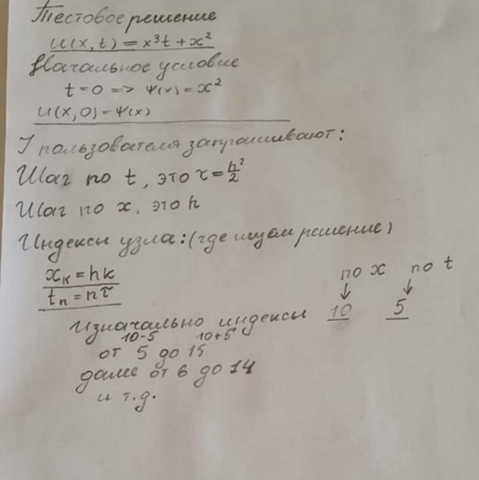 Тестовое решение
u(x,t) = x³t + x²
Начальное условие
t = 0 => Ψ(x) = x²
u(x,0) = Ψ(x)
У пользователя запрашивают:
Шаг по t, это τ = h²/2
Шаг по x, это h
Индексы узла: (где ищем решение)
xₖ = hk
tₙ = nτ
по x по t
↓ ↓
Изначально индексы 10 5
10-5 10+5
от 5 до 15
далее от 6 до 14
и т.д.